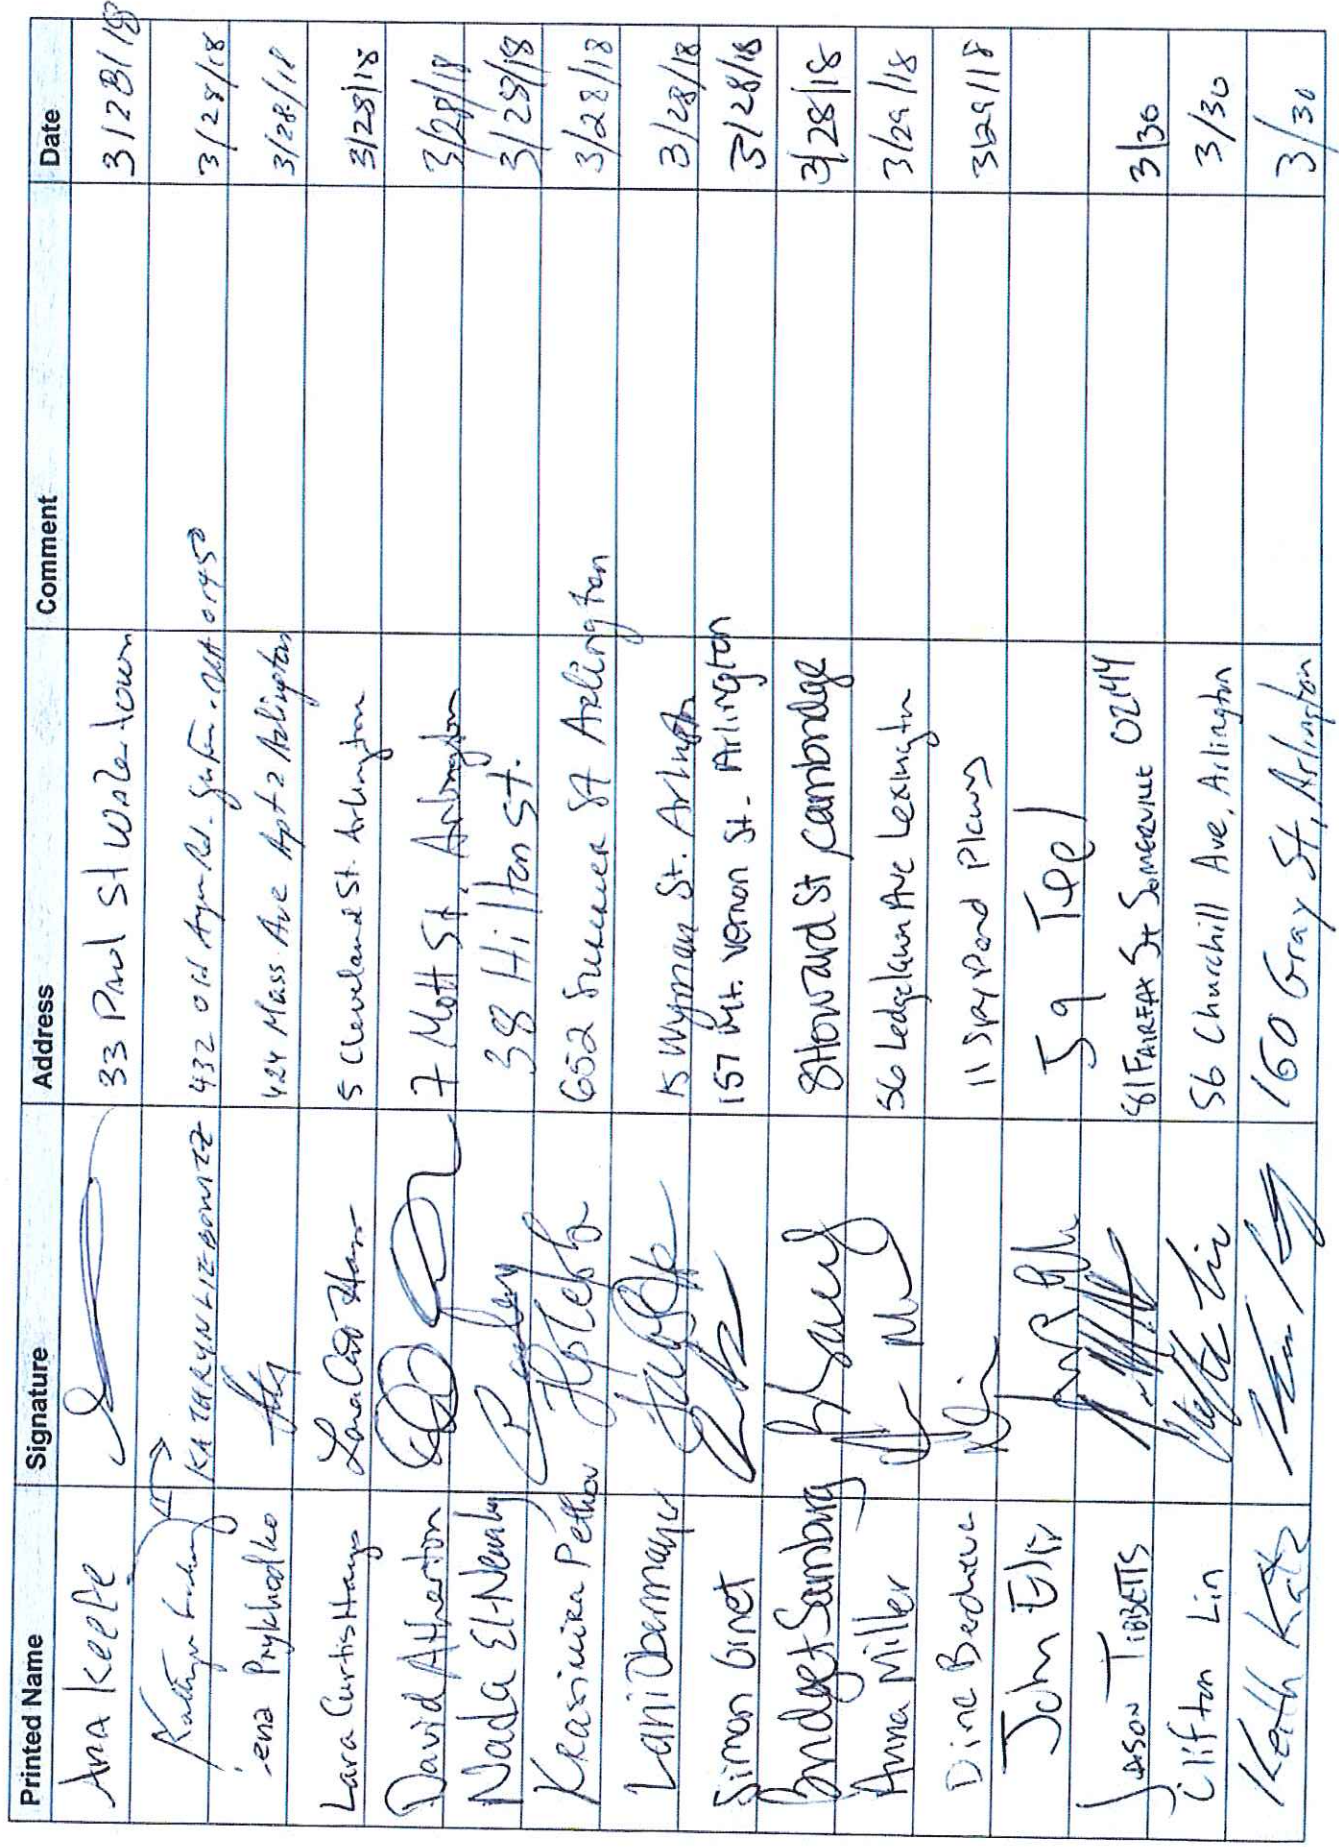 Printed Name Signature Address Comment Date
Ana Keefe 33 Paul St Watertown 3/28/18
KATHRYN LIEBOWITZ 432 Old Ayer Rd. Groton, MA 01450 3/28/18
Prykhodko 424 Mass. Ave Apt 2 Arlington 3/28/18
Lara Curtis Hayes 5 Cleveland St. Arlington 3/28/18
David Atherton 7 Mott St. Arlington 3/28/18
Nada El-Newahy 38 Hilton St. 3/28/18
Krasimira Petkov 652 Summer St Arlington 3/28/18
Lani Obermayer 15 Wyman St. Arlington 3/28/18
Simon Ginet 157 Mt. Vernon St. Arlington 3/28/18
Bridget Samburg 8 Howard St Cambridge 3/28/18
Anna Miller 56 Ledgelawn Ave Lexington 3/29/18
11 Spy Pond 3/29/18
John 59 Teel
JASON TIBBETTS 81 FAIRFAX St SOMERVILLE 02144 3/30
Clifton Lin 56 Churchill Ave, Arlington 3/30
Keith Katz 160 Gray St, Arlington 3/30